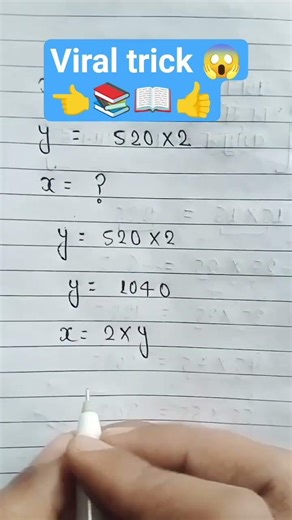 Viral trick 😱
👈📚📖👍
y = 520×2
x = ?
y = 520×2
y = 1040
x = 2×y